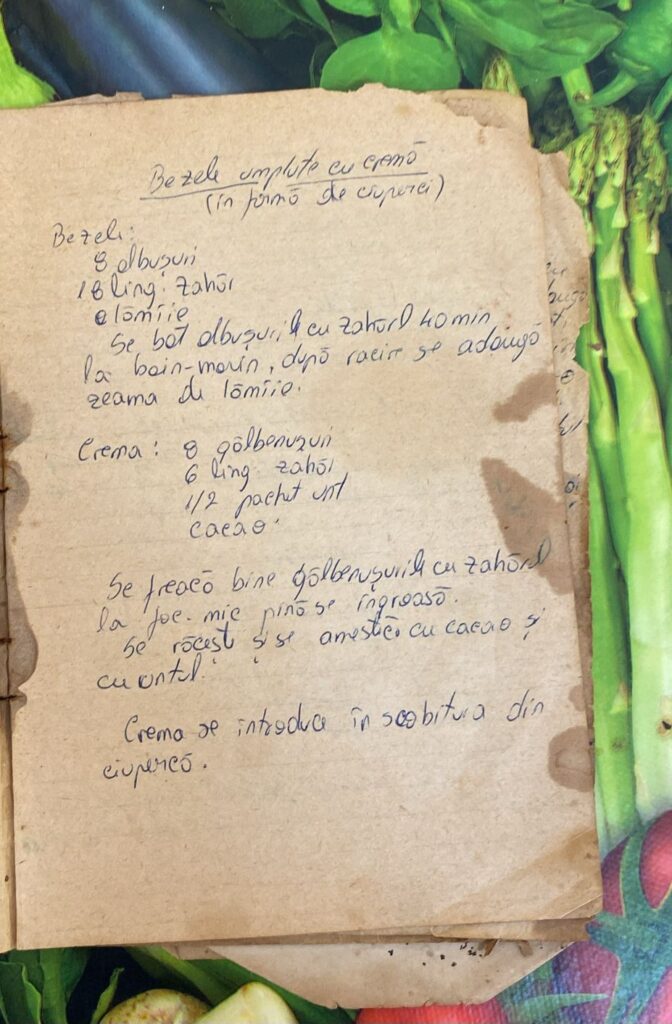 Bezele umplute cu cremă
(în formă de ciuperci)
Bezele:
8 albușuri
18 ling. zahăr
o lămîie
Se bat albușurile cu zahărul 40 min
la bain-marin, după racire se adaugă
zeama de lămîie.
Crema: 8 gălbenușuri
6 ling. zahăr
1/2 pachet unt
cacao.
Se freacă bine gălbenușurile cu zahărul
la foc mic pînă se îngroașă.
Se răcește și se amestică cu cacao și
cu untul.
Crema se introduce în scobitura din
ciupercă.